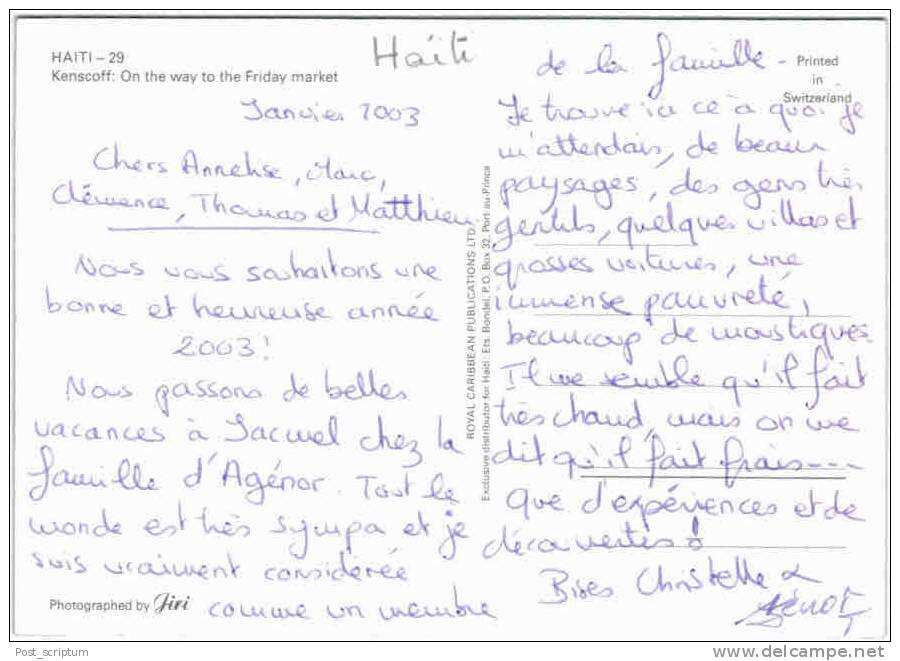 HAITI – 29
Kenscoff: On the way to the Friday market
Haïti
Janvier 2003
Chers Annelise, Marc,
Clémence, Thomas et Matthieu.
Nous vous souhaitons une
bonne et heureuse année
2003!
Nous passons de belles
vacances à Jacmel chez la
famille d'Agénor. Tout le
monde est très sympa et je
suis vraiment considérée
comme un membre
Photographed by Jiri
ROYAL CARIBBEAN PUBLICATIONS LTD.
Exclusive distributor for Haiti: Ets. Bondel, P.O. Box 32, Port-au-Prince
Printed
in
Switzerland
de la famille -
Je trouve ici ce à quoi je
m'attendais, de beaux
paysages, des gens très
gentils, quelques villas et
grosses voitures, une
immense pauvreté,
beaucoup de moustiques.
Il me semble qu'il fait
très chaud, mais on me
dit qu'il fait frais---
Que d'expériences et de
découvertes!
Bises Christelle &
Post_scriptum
www.delcampe.net